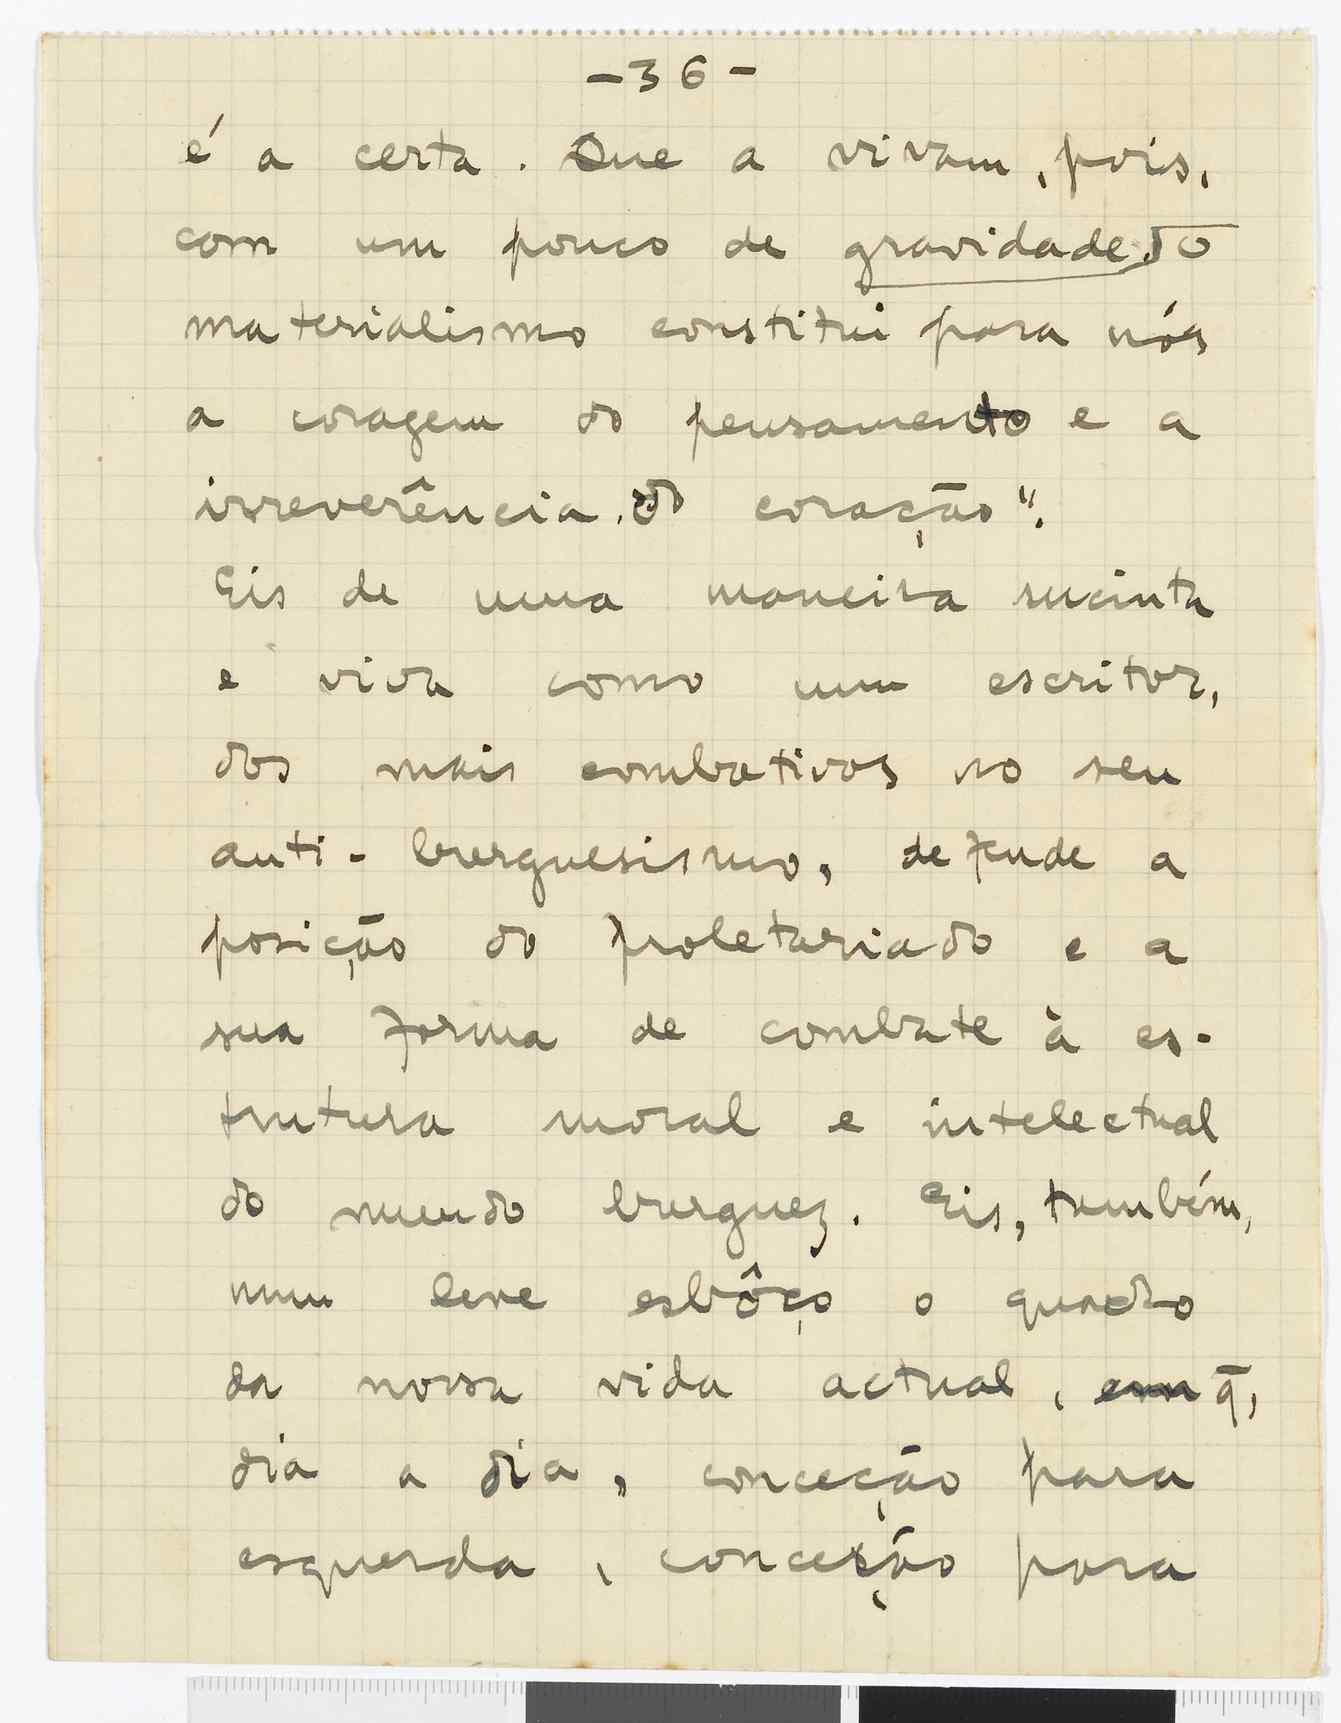 -36-
é a certa. Que a vivam, pois,
com um pouco de gravidade. O
materialismo constitui para nós
a coragem do pensamento e a
irreverência do coração".
Eis de uma maneira sucinta
e viva como um escritor,
dos mais combativos no seu
anti-burguesismo, defende a
posição do proletariado e a
sua forma de combate à es-
trutura moral e intelectual
do mundo burguez. Eis, também,
num leve esbôço o quadro
da nossa vida actual, em q̄,
dia a dia, conceção para
esquerda, conceção para